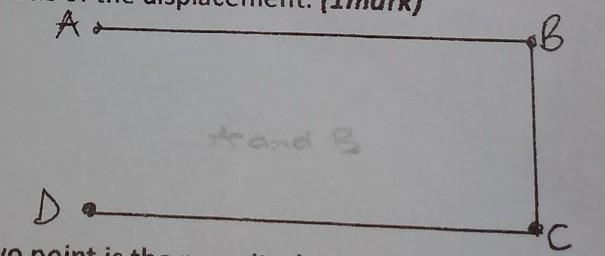 of the displacement. (1mark)
A B
A and B
D C
point is the